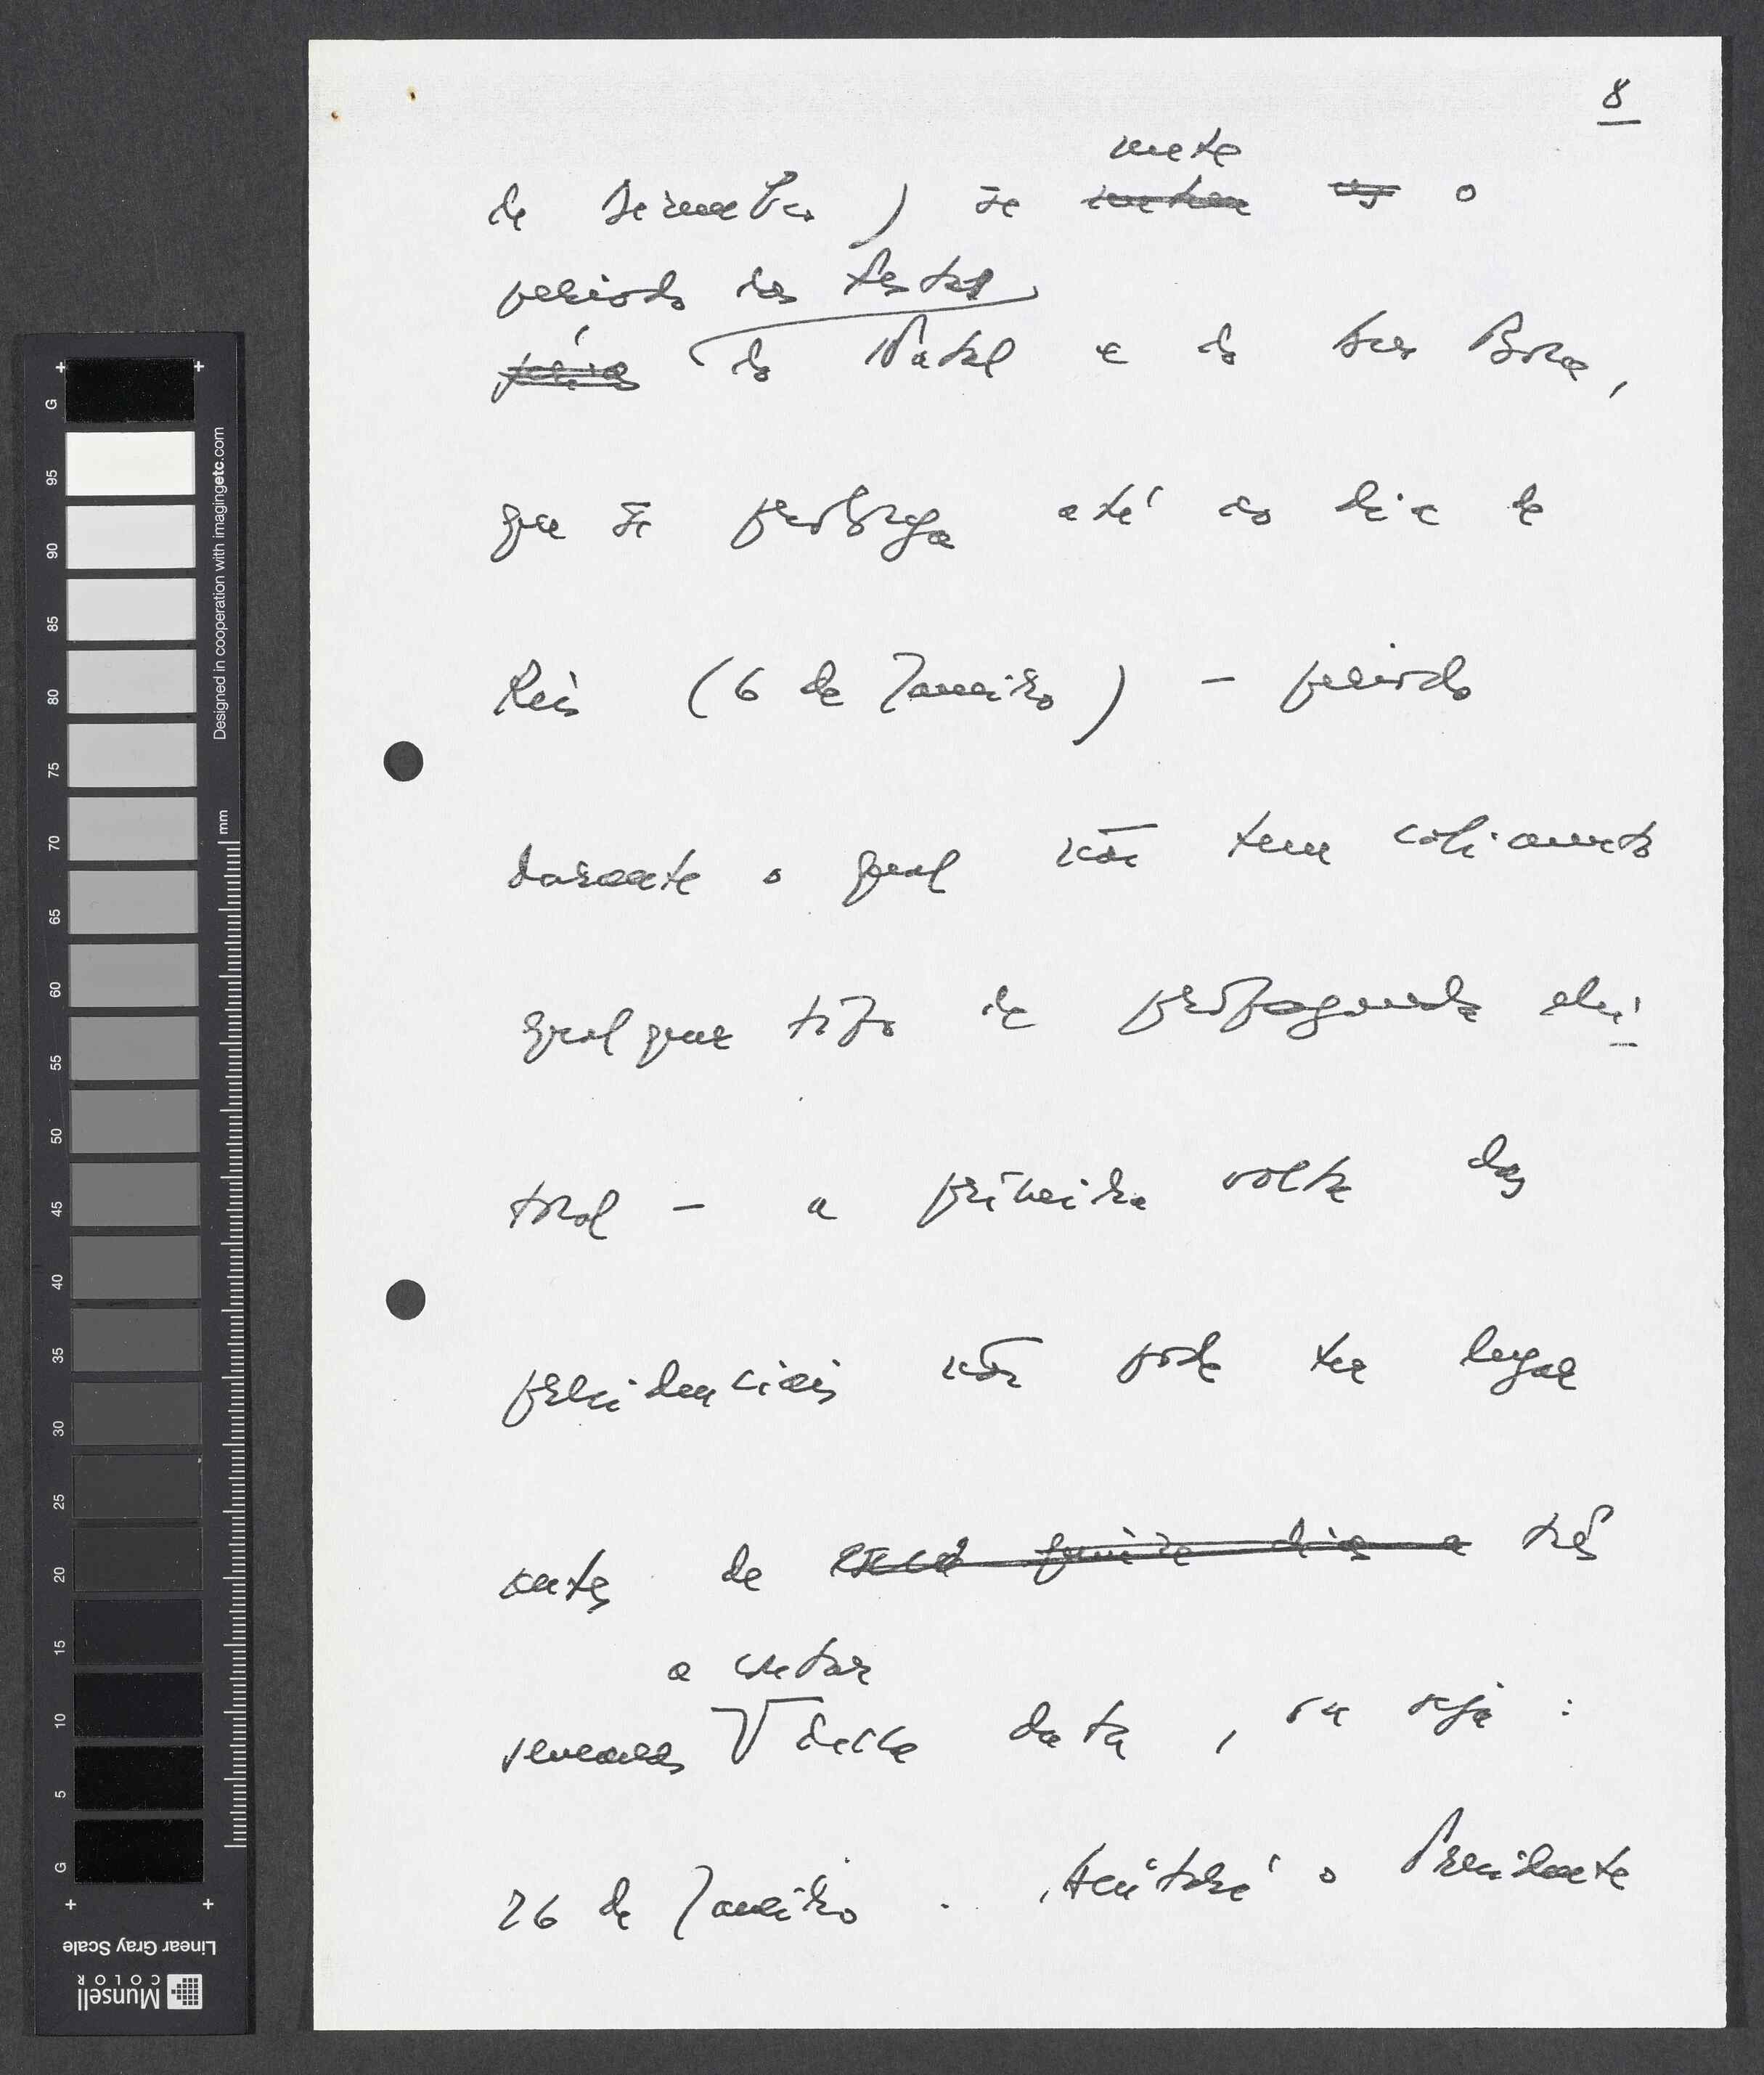 8
mete
de Dezembro) se metem as o
período das festas
férias do Natal e do Ano Bom,
que se prolonga até ao dia de
Reis (6 de Janeiro) – período
durante o qual não tem cabimento
qualquer tipo de propaganda elei
toral – a primeira volta das
presidenciais não pode ter lugar
antes de quinze dias a três
a contar
semanas dessa data, ou seja:
26 de Janeiro. o Presidente
G
95
90
85
80
75
70
65
60
55
50
45
40
35
30
25
20
15
10
5
G
mm
Designed in cooperation with imagingetc.com
Linear Gray Scale
Munsell
COLOR